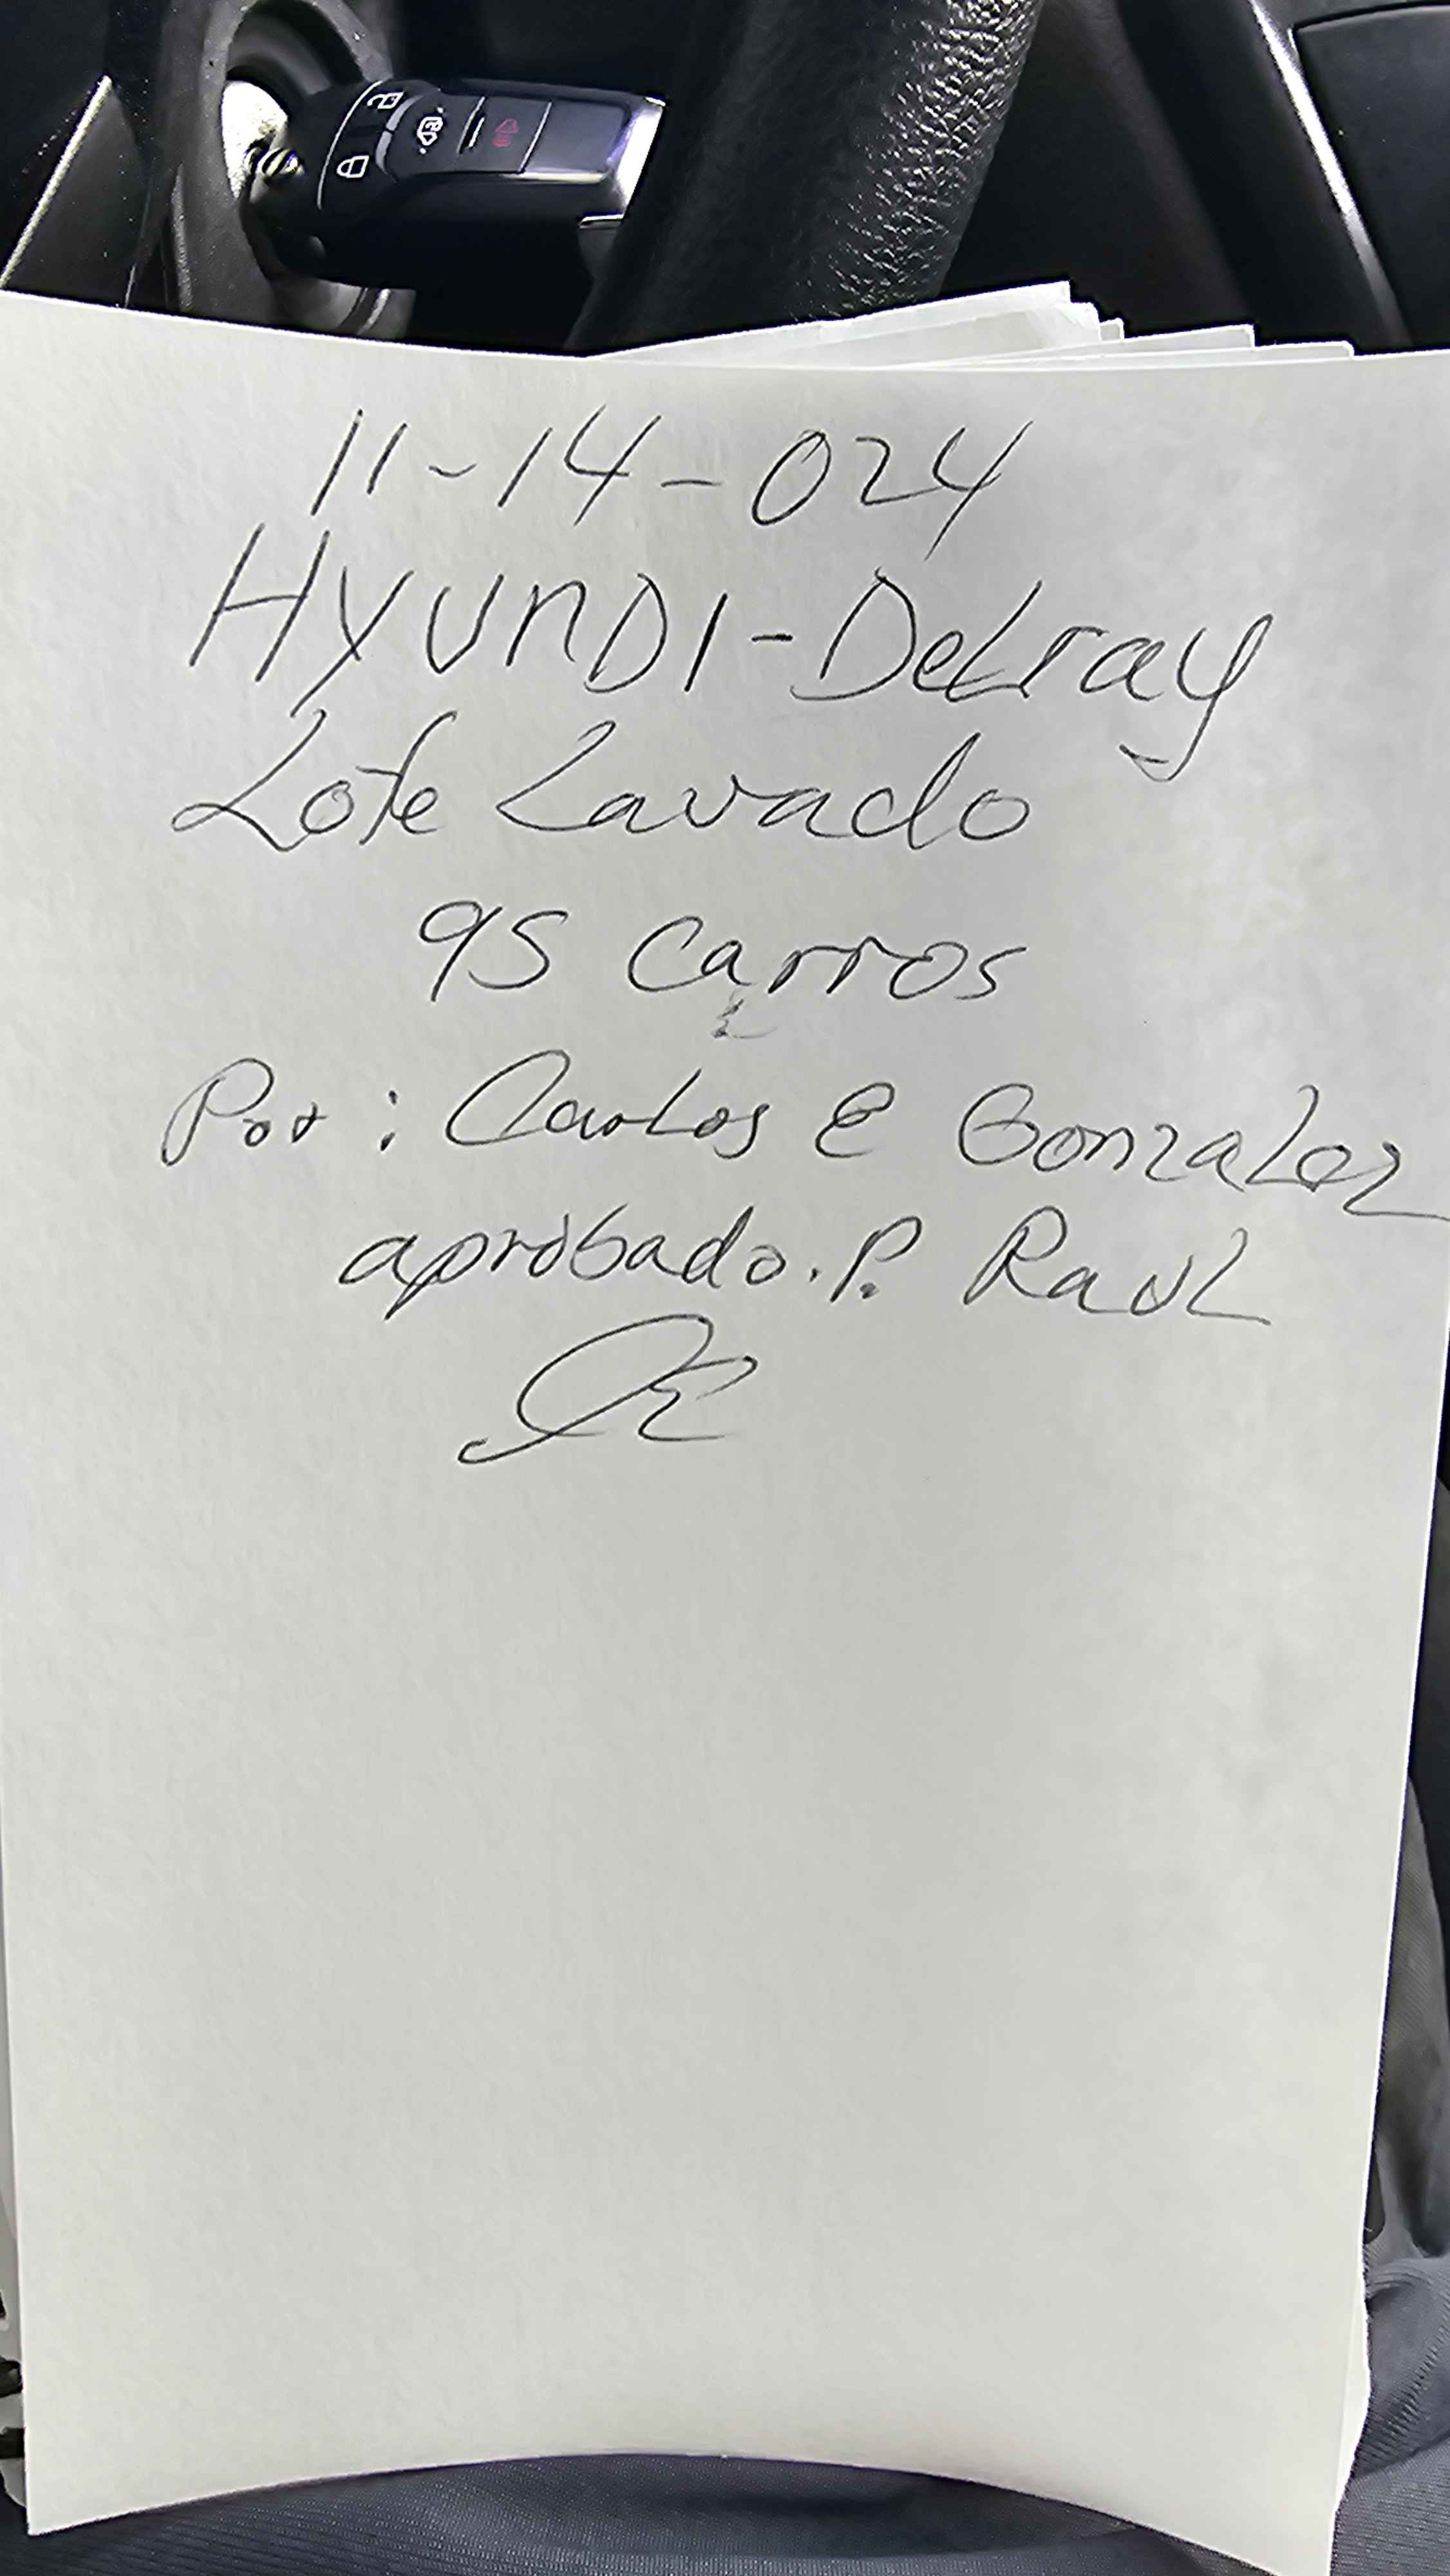 11-14-024
HYUNDI-Delray
Lote Lavado
95 Carros
Por: Carlos E Gonzalez
aprobado. P. Raul